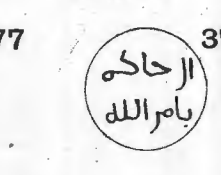 77
الحاكم
بامر الله